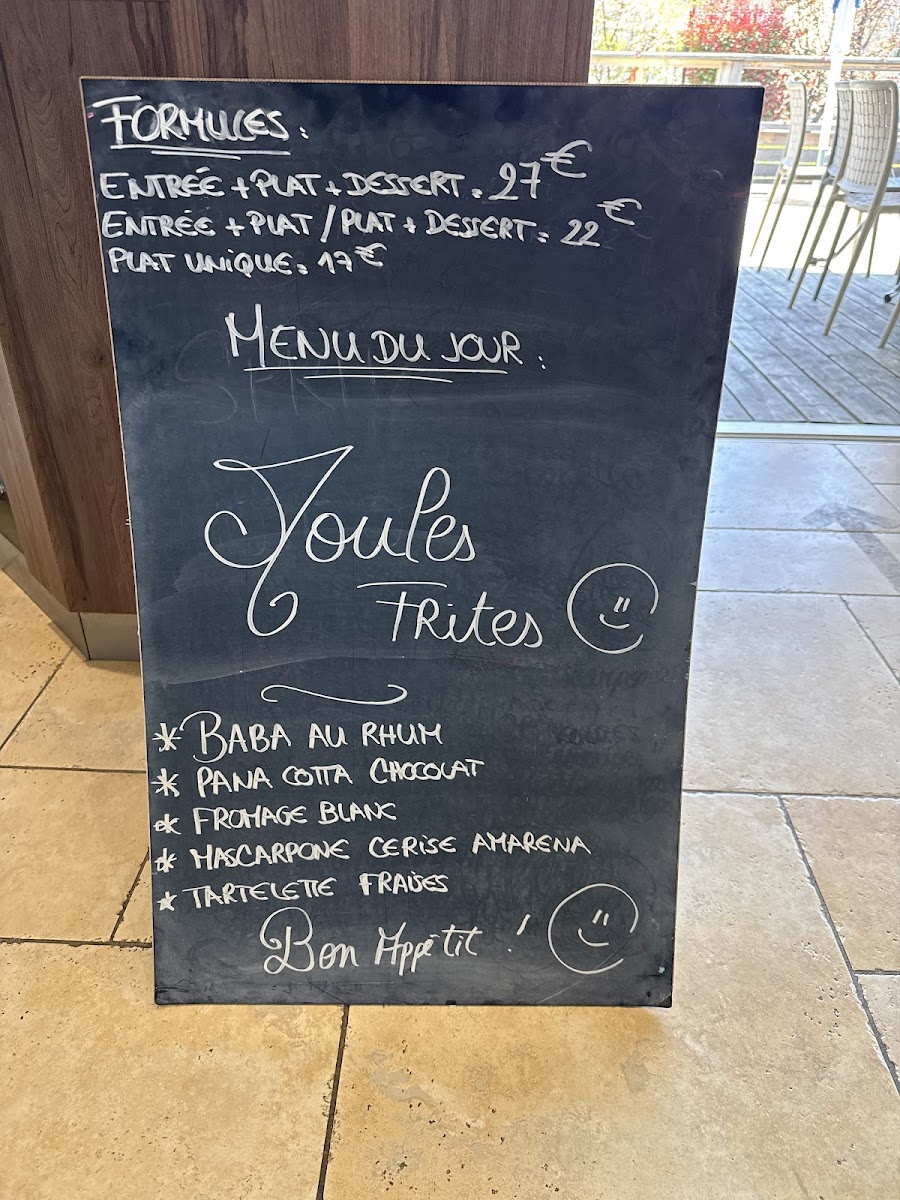 FORMULES :
ENTRÉE + PLAT + DESSERT = 27€
ENTRÉE + PLAT / PLAT + DESSERT = 22€
PLAT UNIQUE = 17€
MENU DU JOUR :
Moules
Frites
* BABA AU RHUM
* PANA COTTA CHOCOLAT
* FROMAGE BLANC
* MASCARPONE CERISE AMARENA
* TARTELETTE FRAISES
Bon Appétit !